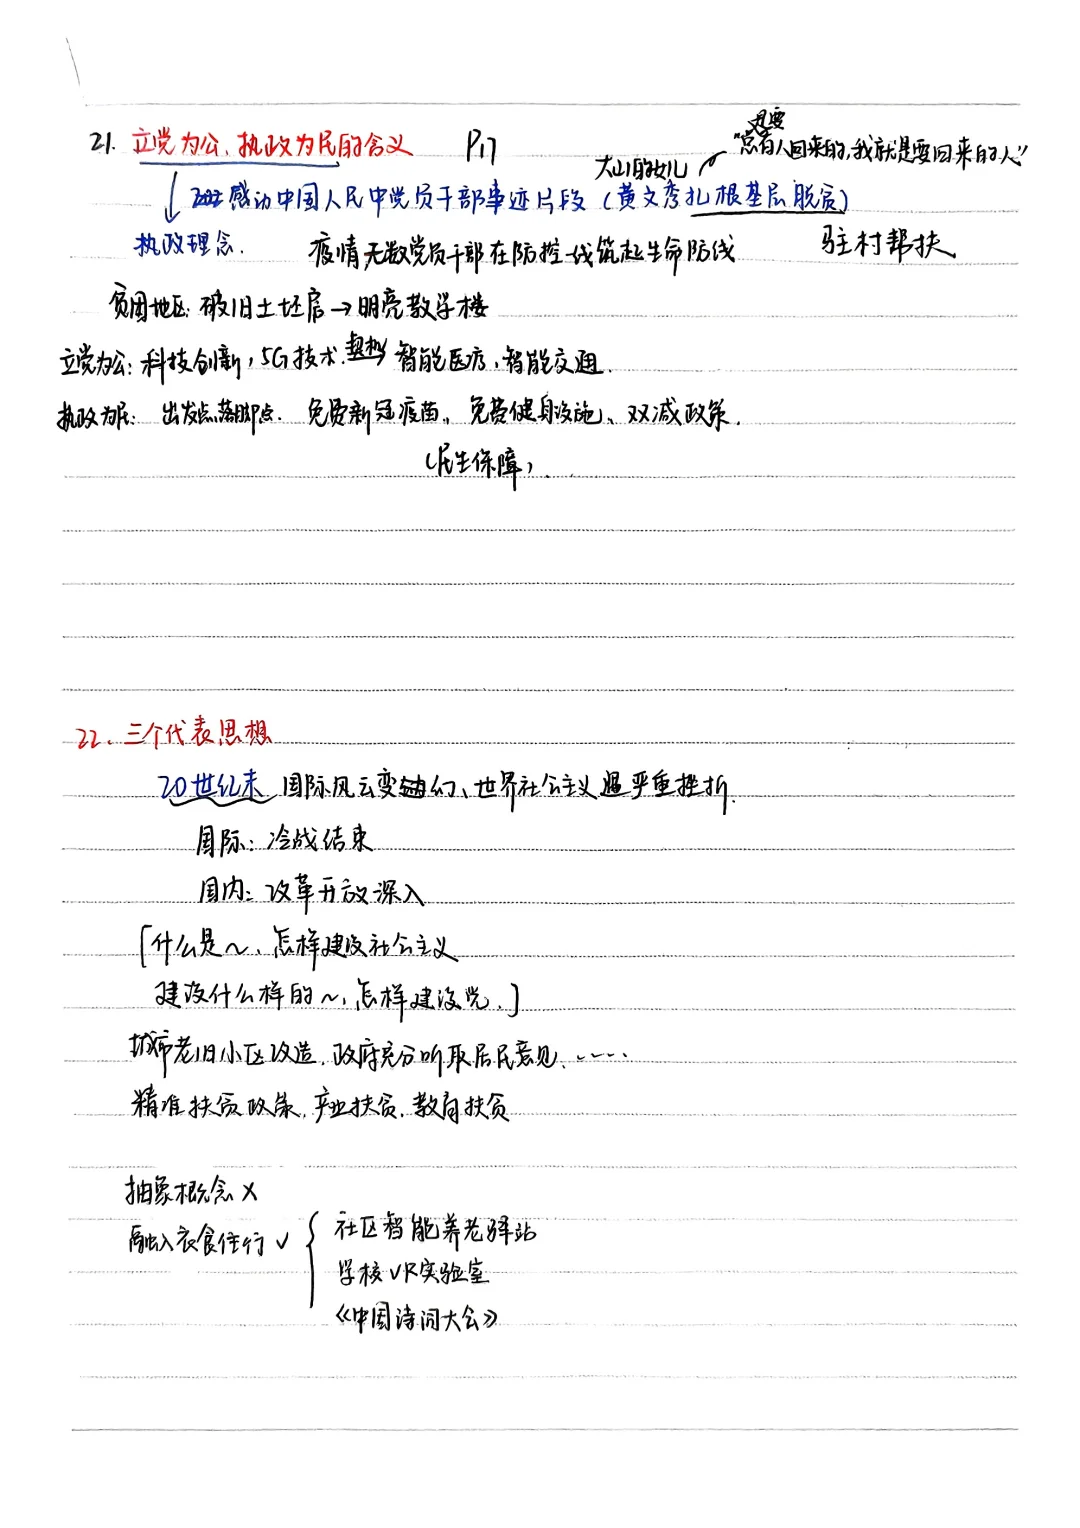 21. 立党为公、执政为民的含义 P17
是要
"总有人回来的,我就是要回来的人"
大山的女儿
感动中国人民中党员干部事迹片段(黄文秀扎根基层脱贫)
执政理念. 疫情无数党员干部在防控一线筑起生命防线 驻村帮扶
贫困地区: 破旧土坯房→明亮教学楼
立党为公: 科技创新, 5G技术. 智能医疗, 智能交通.
执政为民: 出发点落脚点. 免费新冠疫苗, 免费健身设施、双减政策.
(民生保障)
22、三个代表思想
20世纪末 国际风云变幻、世界社会主义遇严重挫折.
国际: 冷战结束
国内: 改革开放深入
[什么是~、怎样建设社会主义
建设什么样的~, 怎样建设党.]
城市老旧小区改造, 政府充分听取居民意见、……
精准扶贫政策, 产业扶贫, 教育扶贫
抽象概念 ×
融入衣食住行 √ { 社区智能养老驿站
学校VR实验室
《中国诗词大会》